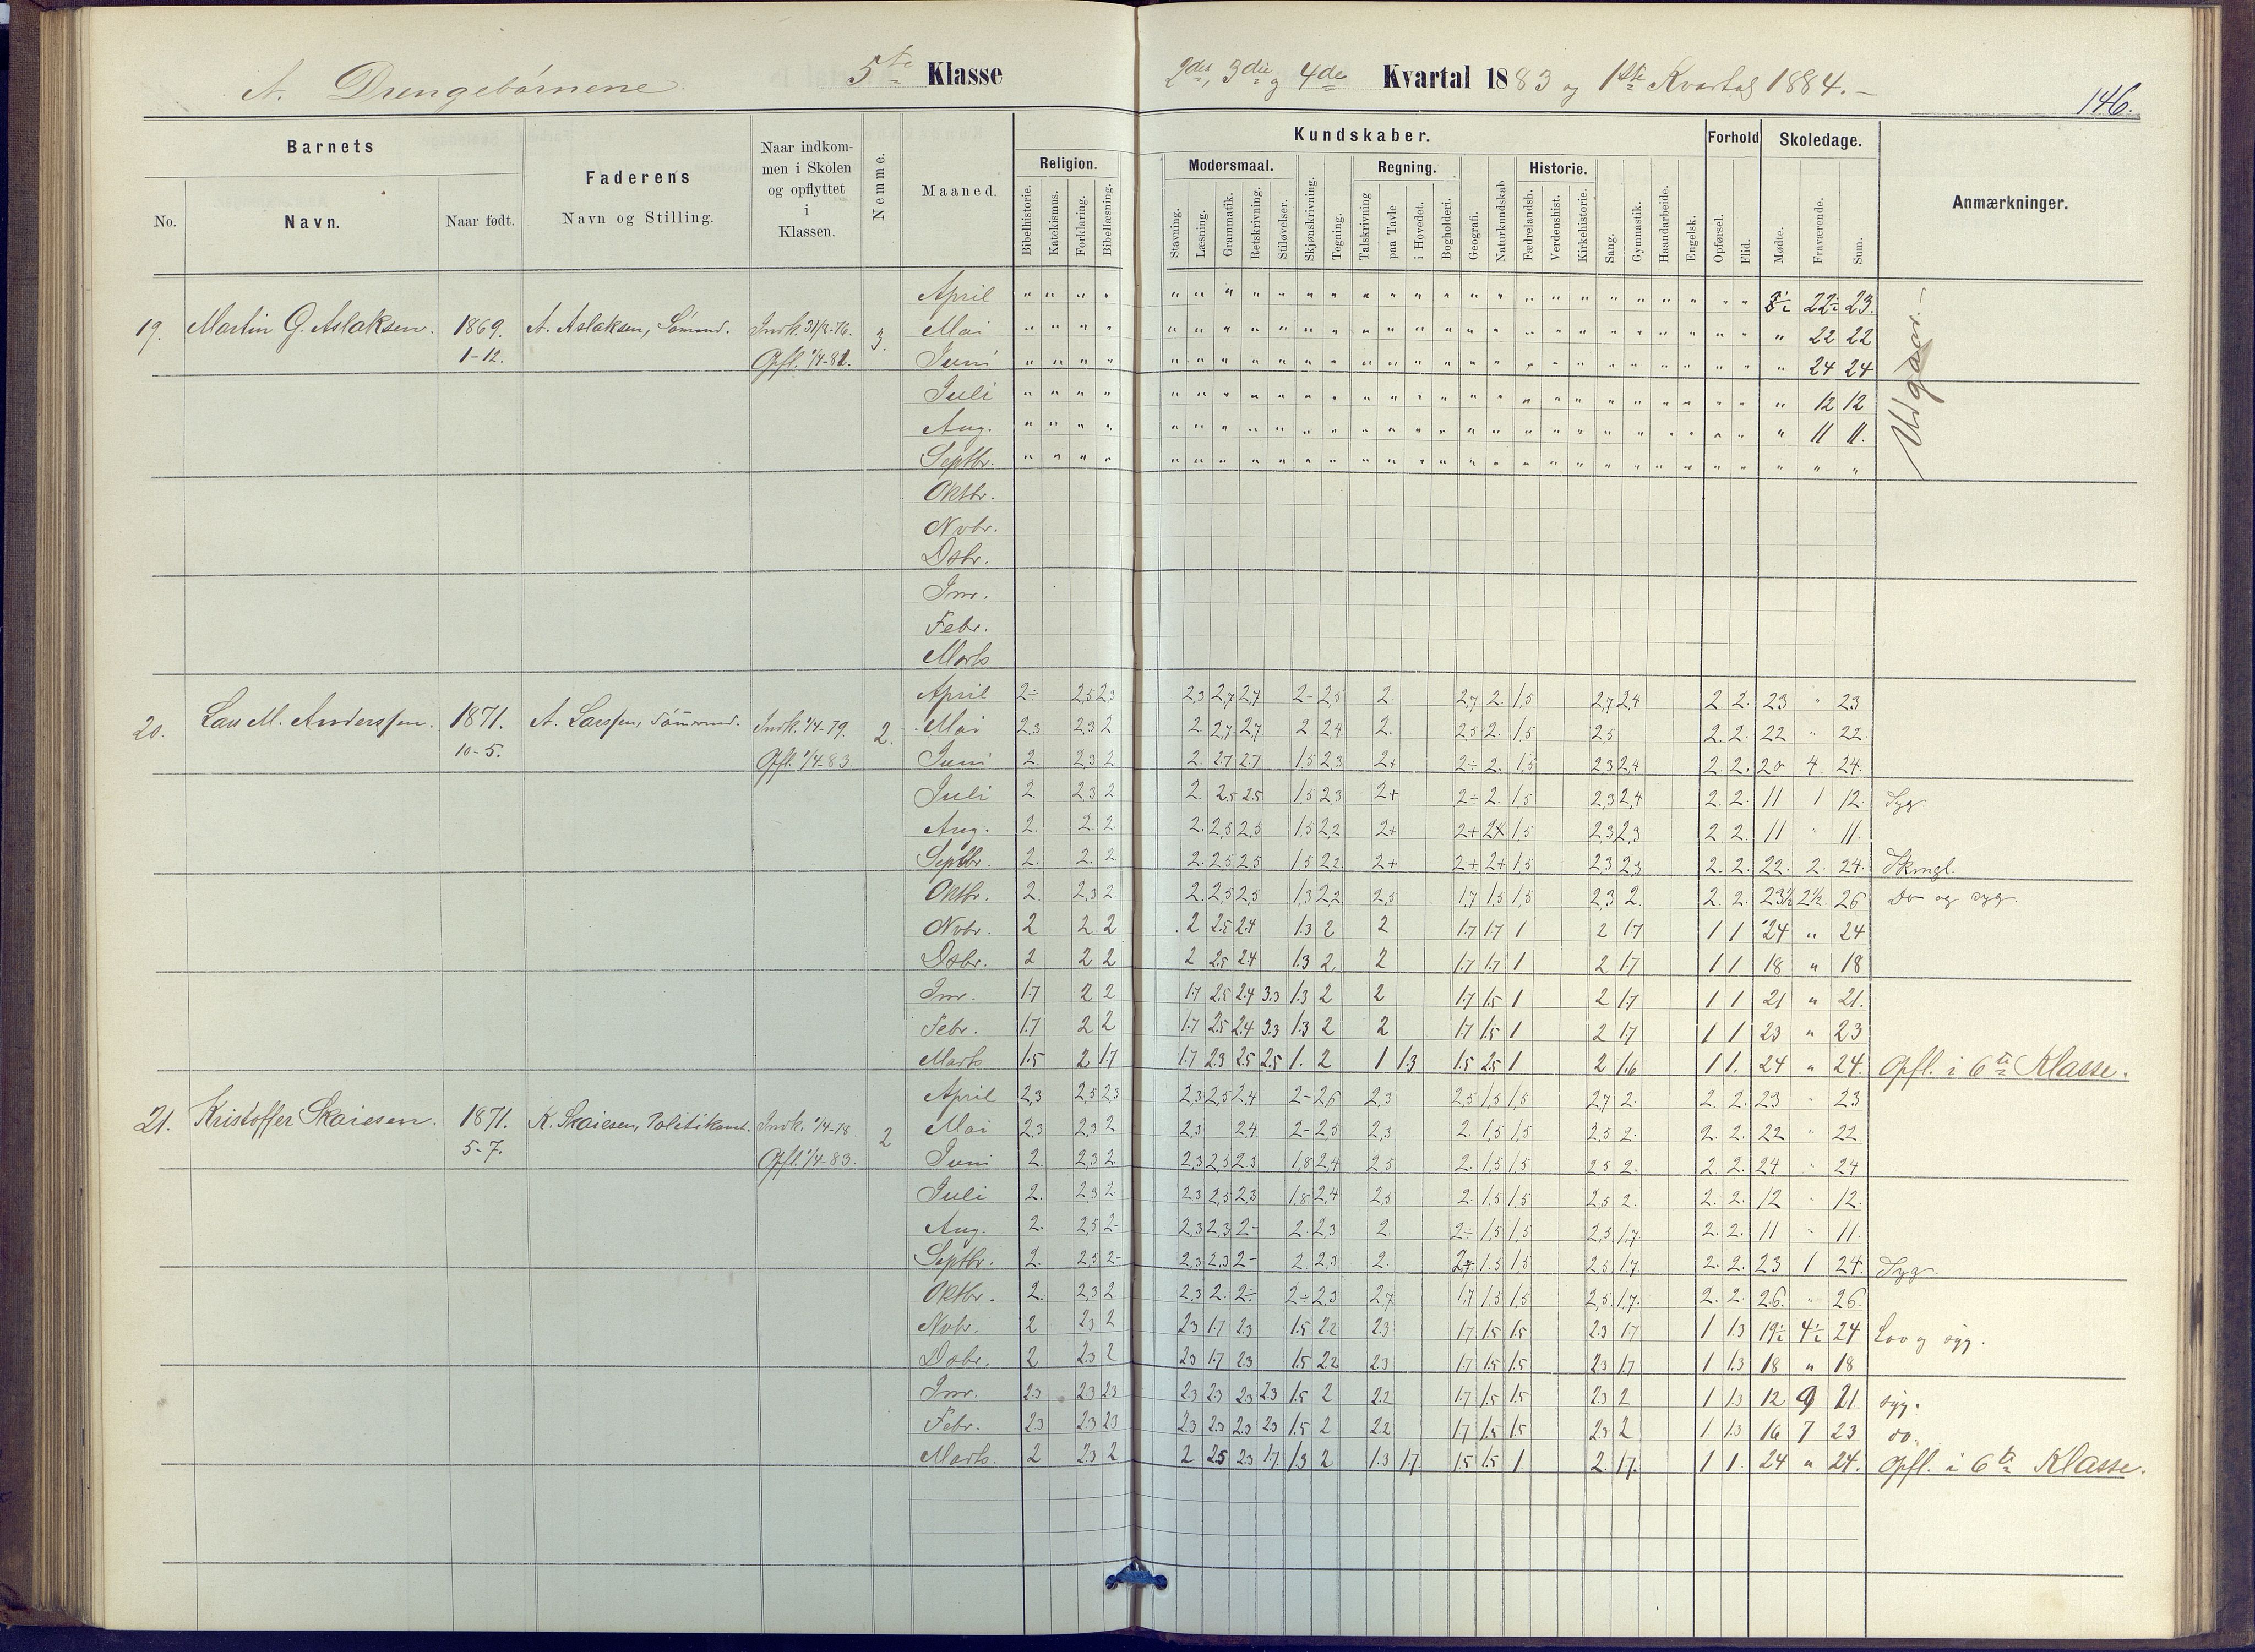 A. Drengebørnene. 5te Klasse 2det, 3die og 4de Kvartal 1883 og 1ste Kvartal 1884.
146.
Barnets Faderens Naar indkommen i Skolen og opflyttet i Klassen. Nemme. Maaned. Kundskaber. Forhold Skoledage. Anmærkninger.
No. Navn. Naar født. Navn og Stilling. Religion. Modersmaal. Regning. Historie.
Bibelhistorie. Katekismus. Forklaring. Bibellæsning. Stavning. Læsning. Grammatik. Retskrivning. Stiløvelser. Skjønskrivning. Tegning. Talskrivning paa Tavle i Hovedet. Bogholderi. Geografi. Naturkundskab Fædrelandsh. Verdenshist. Kirkehistorie. Sang. Gymnastik. Haandarbeide. Engelsk. Opførsel. Flid. Mødte. Fraværende. Sum.
April " " " " 22½ 23.
19. Martin G. Aslaksen. 1869. A. Aslaksen, Sømand. 3. Mai " " " " " 22 22
1-12. Opfl. 1/4-82. Juni " " " " " 24 24
Juli " " " " " 12 12
Aug. " " " " " 11 11.
Septbr. " " " " " " "
Udgaar.
Oktbr.
Novbr.
Dsbr.
Jnr.
Febr.
Marts
April 2÷ 2,5 2,3 2,3 2,7 2,7 2- 2,5 2. 2,7 2. 1,5 2,7 2,4 2. 2. 23 " 23
20. Lars M. Anderssen. 1871. A. Larssen, Tømmermd. Indk. 1/4-79. 2. Mai 2,3 2,3 2 2. 2,7 2,7 2 2,4 2. 2,5 2. 1,5 2,5 2. 2. 22 " 22.
10-5. Opfl. 1/4-83. Juni 2. 2,3 2 2. 2,7 2,7 1,5 2,3 2+ 2÷ 2. 1,5 2,3 2,4 2. 2. 20 4. 24.
Juli 2. 2,3 2 2. 2,5 2,5 1,5 2,3 2+ 2÷ 2. 1,5 2,3 2,4 2. 2. 11 1 12. Syg.
Aug. 2. 2. 2. 2. 2,5 2,5 1,5 2,2 2+ 2+ 2+ 1,5 2,3 2,3 2 2. 11 " 11.
Septbr. 2. 2. 2 2. 2,5 2,5 1,5 2,2 2+ 2+ 2+ 1,5 2,3 2,3 2. 2. 22. 2. 24. Skmgl.
Oktbr. 2. 2,3 2 2. 2,5 2,5 1,3 2,2 2,5 1,7 1,5 1,5 2,3 2. 2. 2. 23½ 2½. 26 Do og syg.
Novbr. 2 2 2 2 2.5 2.4 1.3 2 2 1.7 1.7 1 2 1.7 1 1 24 " 24
Dsbr. 2 2 2 2 2.5 2.4 1.3 2 2 1.7 1.7 1 2 1.7 1 1 18 " 18
Jnr. 1.7 2 2 1.7 2.5 2.4 3.3 1.3 2 2 1.7 1.5 1 2 1.7 1 1 21 " 21.
Febr. 1.7 2 2 1.7 2.5 2.4 3.3 1.3 2 2 1.7 1.5 1 2 1.7 1 1 23 " 23
Marts 1.5 2 1.7 1.7 2.3 2.5 2.5 1. 2 1 1.3 1.5 2.5 1 2 1.6 1 1. 24 " 24. Opfl. i 6te Klasse.
April 2,3 2,5 2,3 2,3 2,5 2,4 2- 2,6 2,3 2,5 1,5 1,5 2,7 2. 2. 2. 23 " 23
21. Kristoffer Skaiesen. 1871. K. Skaiesen, Politikonst. Indk. 1/4-78. 2 Mai 2,3 2,3 2 2,3 2,4 2- 2,5 2,3 2. 1,5 1,5 2,5 2. 2. 2. 22 " 22
5-7. Opfl. 1/4-83. Juni 2. 2,3 2 2,3 2,5 2,3 1,8 2,4 2,5 2. 1,5 1,5 2,5 2. 2. 2. 24 " 24
Juli 2. 2,3 2. 2,3 2,5 2,3 1,8 2,4 2,5 2. 1,5 1,5 2,5 2. 2. 2. 12 " 12.
Aug. 2. 2,5 2- 2,3 2,3 2- 2. 2,3 2. 2÷ 1,5 1,5 2,5 1,7 2. 2. 11 " 11.
Septbr. 2. 2,5 2- 2,3 2,3 2- 2. 2,3 2. 1,5 1,5 2,5 1,7. 2. 2. 23 1 24. Syg.
Oktbr. 2. 2,3 2. 2,3 2. 2÷ 2÷ 2,3 2,7 1,7 1,5 1,5 2,5 1,7. 2. 2. 26. " 26.
Novbr. 2 2.3 2 2.3 1.7 2.3 1.5 2.2 2.3 1.7 1.5 1.5 2.3 1.7 1 1.3 19½ 4½ 24 Lov og syg.
Dsbr. 2 2.3 2 2.3 1.7 2.3 1.5 2.2 2.3 1.7 1.5 1.5 2.3 1.7 1 1.3 18 " 18
Jnr. 2.3 2.3 2.3 2.3 2.3 2.3 2.3 1.5 2 2.2 1.7 1.5 1.5 2.3 2 1 1.3 12 9 21 syg.
Febr. 2.3 2.3 2.3 2.3 2.3 2.3 2.3 1.5 2 2.2 1.7 1.5 1.5 2.3 2 1 1.3 16 7 23 do.
Marts. 2 2.3 2 2 2.5 2.3 1.7 1.3 2 1.3 1.7 1.5 1.5 1 2. 1.7. 1 1. 24 " 24. Opfl. i 6te Klasse.